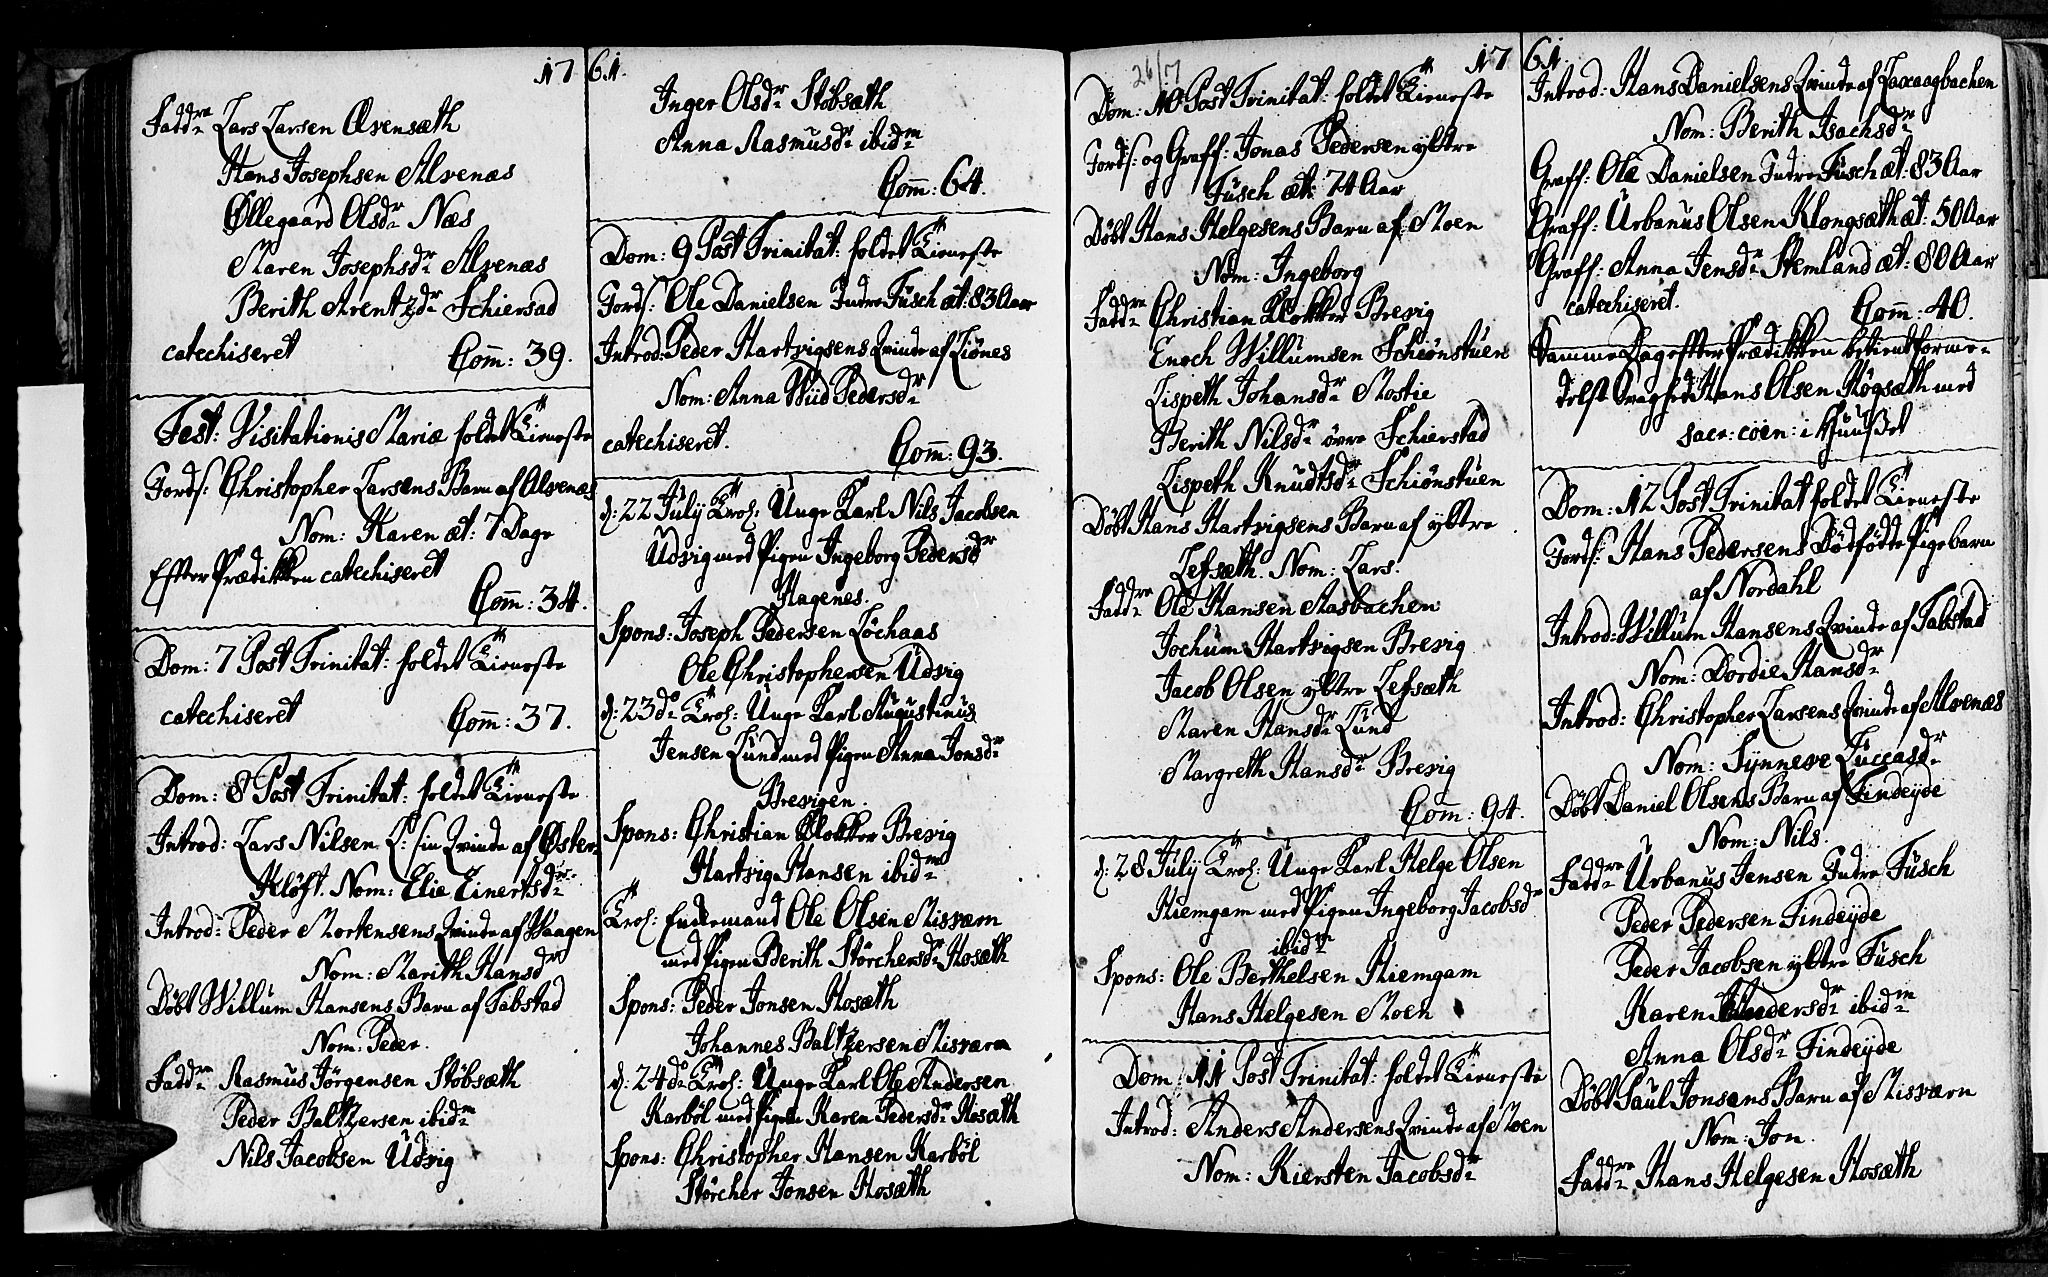 1761.
Fadd:re Lars Larsen Øvensæth
Hans Josephsen Alvenæs
Øllegaard Olsdr: Næs
Maren Josephsdr: Alvenæs
Berith Arentzdr: Schierstad
catechiseret Com̄: 39.
Fest: Visitationis Mariæ holdet Tieneste
Jords: Christopher Larsens Barn af Alvenæs
Nom: Karen æt: 7 Dage
Efter Prædikken catechiseret
Com̄: 34.
Dom: 7 Post Trinitat: holdet Tieneste
catechiseret Com̄: 37.
Dom: 8 Post Trinitat: holdet Tieneste
Introd: Lars Nilsen L: sin Qvinde af Øster-
Kløft. Nom: Elie Einertsdr:
Introd: Peder Mortensens Qvinde af Waagen
Nom: Marith Hansdr
Døbt Willum Hansens Barn af Tabstad
Nom: Peder.
Fadd:re Rasmus Jørgensen Støbsæth
Peder Baltzersen ibidm
Nils Jacobsen Udvig
Inger Olsdr: Støbsæth
Anna Rasmusdr: ibidm
Com̄: 64.
Dom: 9 Post Trinitat: holdet Tieneste
Jords: Ole Danielsen Indre Fusch æt: 83 Aar
Introd: Peder Hartvigsens Qvinde af Liønes
Nom: Anna Wiid Pedersdr
catechiseret. Com̄: 93.
d: 22 July Trol: Unge Karl Nils Jacobsen
Udvig med Pigen Ingeborg Pedersdr
Hagenes.
Spons: Joseph Pedersen Løchaas
Ole Christophersen Udvig
d: 23do Trol: Unge Karl Augustinus
Jensen Lund med Pigen Anna Jonsdr:
Brevigen.
Spons: Christian Klokker Brevig
Hartvig Hansen ibidm
Trol: Enkemand Ole Olsen Misværn
med Pigen Berith Størchersdr: Hosæth
Spons: Peder Jonsen Hosæth
Johannes Baltzersen Misværn
d: 24do Trol: Unge Karl Ole Andersen
Karbøl med Pigen Karen Pedersdr: Hosæth
Spons: Christopher Hansen Karbøl
Størcher Jonsen Hosæth
26/7
1761
Dom: 10 Post Trinitat: holdet Tieneste
Jords: og Graff: Jonas Pedersen ydtre
Fusch æt: 74 Aar
Døbt Hans Helgesens Barn af Moen
Nom: Ingeborg
Fadd:re Christian Klokker Brevig
Enoch Willumsen Schiønstuen
Lispeth Johansdr: Mostie
Berith Nilsdr: øvre Schierstad
Lispeth Knudtsdr: Schiønstuen
Døbt Hans Hartvigsens Barn af ydtre
Lefsæth. Nom: Lars.
Fadd:re Ole Hansen Aasbachen
Jochum Hartvigsen Brevig
Jacob Olsen ydtre Lefsæth
Maren Hansdr: Lund
Margreth Hansdr: Brevig
Com̄: 94.
d: 28 July Trol: Unge Karl Helge Olsen
Hiemgam med Pigen Ingeborg Jacobsdr
ibidm
Spons: Ole Berthelsen Hiemgam
Hans Helgesen Moen
Dom: 11 Post Trinitat: holdet Tieneste
Introd: Anders Andersens Qvinde af Moen
Nom: Kiersten Jacobsdr:
Introd: Hans Danielsens Qvinde af Laxaagbachen
Nom: Berith Isachsdr
Graff: Ole Danielsen Indre Fusch æt: 83 Aar
Graff: Urbanus Olsen Klongsæth æt: 50 Aar
Graff: Anna Jensdr: Stemland æt: 80 Aar
catechiseret. Com̄: 40.
Samme Dag efter Prædikken betient forme-
delst Svaghed Hans Olsen Høgsæth med
sacr: coen: i Huuset
Dom: 12 Post Trinitat holdet Tieneste
Jords: Hans Pedersens Dødfødte Pigebarn
af Nordahl
Introd: Willum Hansens Qvinde af Tabstad
Nom: Dordie Hansdr:
Introd: Christopher Larsens Qvinde af Alvenæs
Nom: Synneve Luccasdr
Døbt Daniel Olsens Barn af Findeyde
Nom: Nils.
Fadd:re Urbanus Jensen Indre Fusch
Peder Pedersen Findeyde
Peder Jacobsen ydtre Fusch
Karen Andersdr: ibidm
Anna Olsdr: Findeyde
Døbt Paul Jonsens Barn af Misværn
Nom: Jon.
Fadd:re Hans Helgesen Hosæth